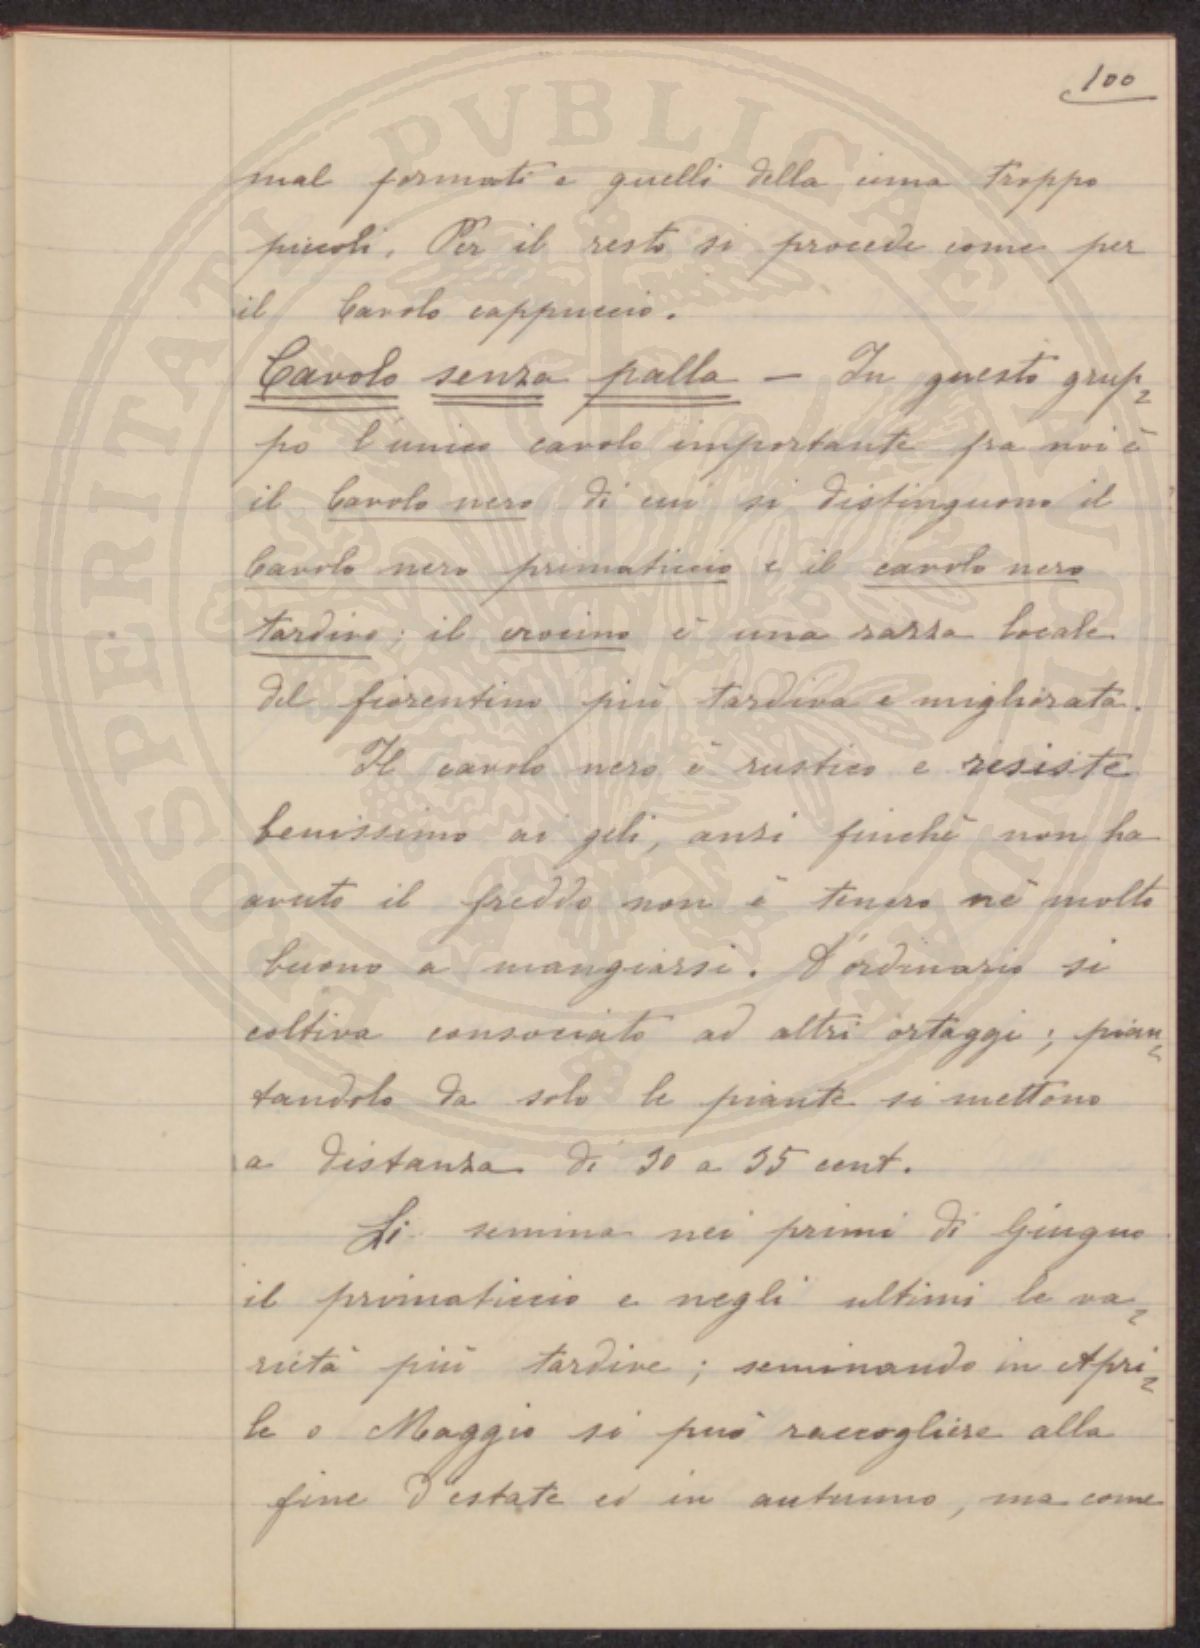 100
mal formati e quelli della cima troppo
piccoli. Per il resto si procede come per
il Cavolo cappuccio.
Cavolo senza palla – In questo grup=
po l'unico cavolo importante fra noi è
il Cavolo nero di cui si distinguono il
Cavolo nero primaticcio e il cavolo nero
tardivo; il crocino è una razza locale
del fiorentino più tardiva e migliorata.
Il cavolo nero è rustico e resiste
benissimo ai geli, anzi finchè non ha
avuto il freddo non è tenero nè molto
buono a mangiarsi. D'ordinario si
coltiva consociato ad altri ortaggi; pian=
tandolo da solo le piante si mettono
a distanza di 30 a 35 cent.
Si semina nei primi di Giugno
il primaticcio e negli ultimi le va=
rietà più tardive; seminando in Apri=
le o Maggio si può raccogliere alla
fine d'estate ed in autunno, ma come
PROSPERITATI PVBLICAE